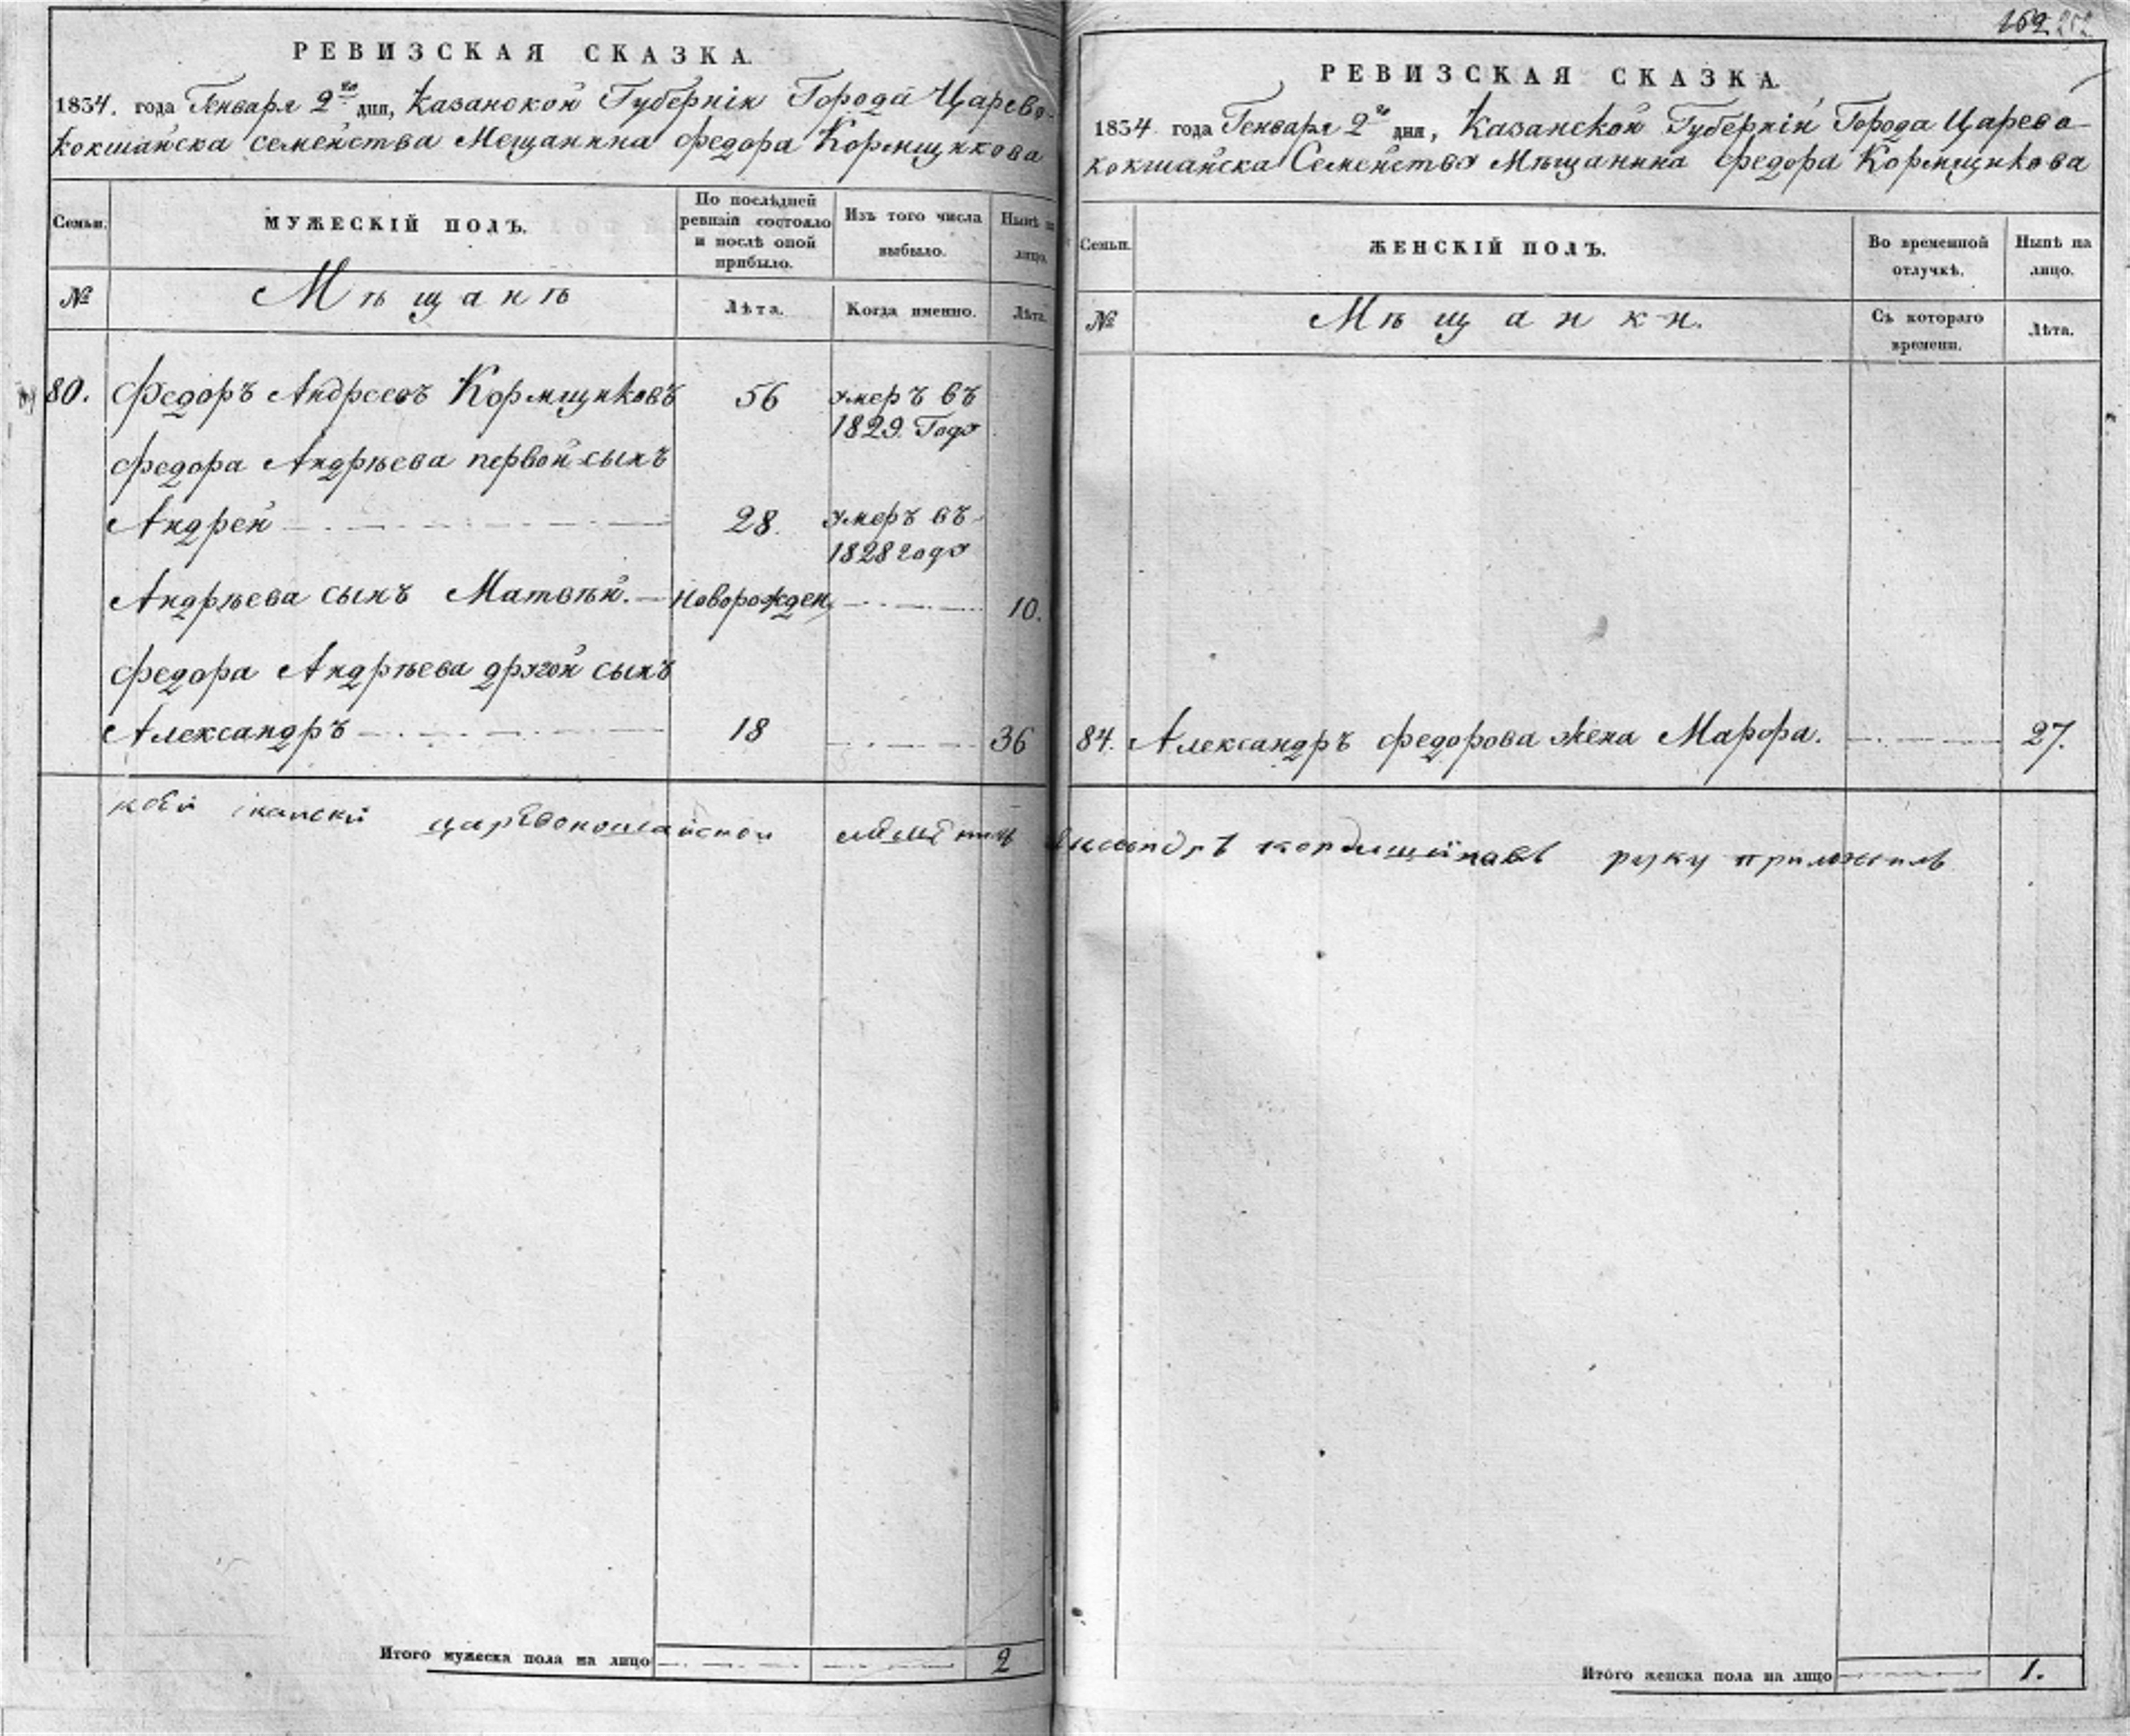 РЕВИЗСКАЯ СКАЗКА.
1834. года Генваря 2го дня, Казанской Губерніи Города Царево-
кокшайска семейства Мещанина Федора Кормщикова
Семьи.
МУЖЕСКІЙ ПОЛЪ.
По послѣдней ревизіи состояло и послѣ оной прибыло.
Изъ того числа выбыло.
Нынѣ на лицо.
№
Мѣщанѣ
Лѣта.
Когда именно.
Лѣта.
80. Федоръ Андреевъ Кормщиковъ 56 умеръ въ
1829. Году
Федора Андрѣева первой сынъ
Андрей 28. умеръ въ
1828 году
Андрѣева сынъ Матвѣй. Новорожден 10.
Федора Андрѣева другой сынъ
Александръ 18 36
Итого мужеска пола на лицо 2
162
РЕВИЗСКАЯ СКАЗКА.
1834 года Генваря 2го дня, Казанской Губерніи Города Царево
кокшайска Семейства Мѣщанина Федора Кормщикова
Семьи.
ЖЕНСКІЙ ПОЛЪ.
Во временной отлучкѣ.
Нынѣ на лицо.
№
Мѣщанки.
Съ котораго времени.
Лѣта.
84. Александръ Федорова жена Марфа. 27.
царевококшайской руку приложилъ
Итого женска пола на лицо 1.